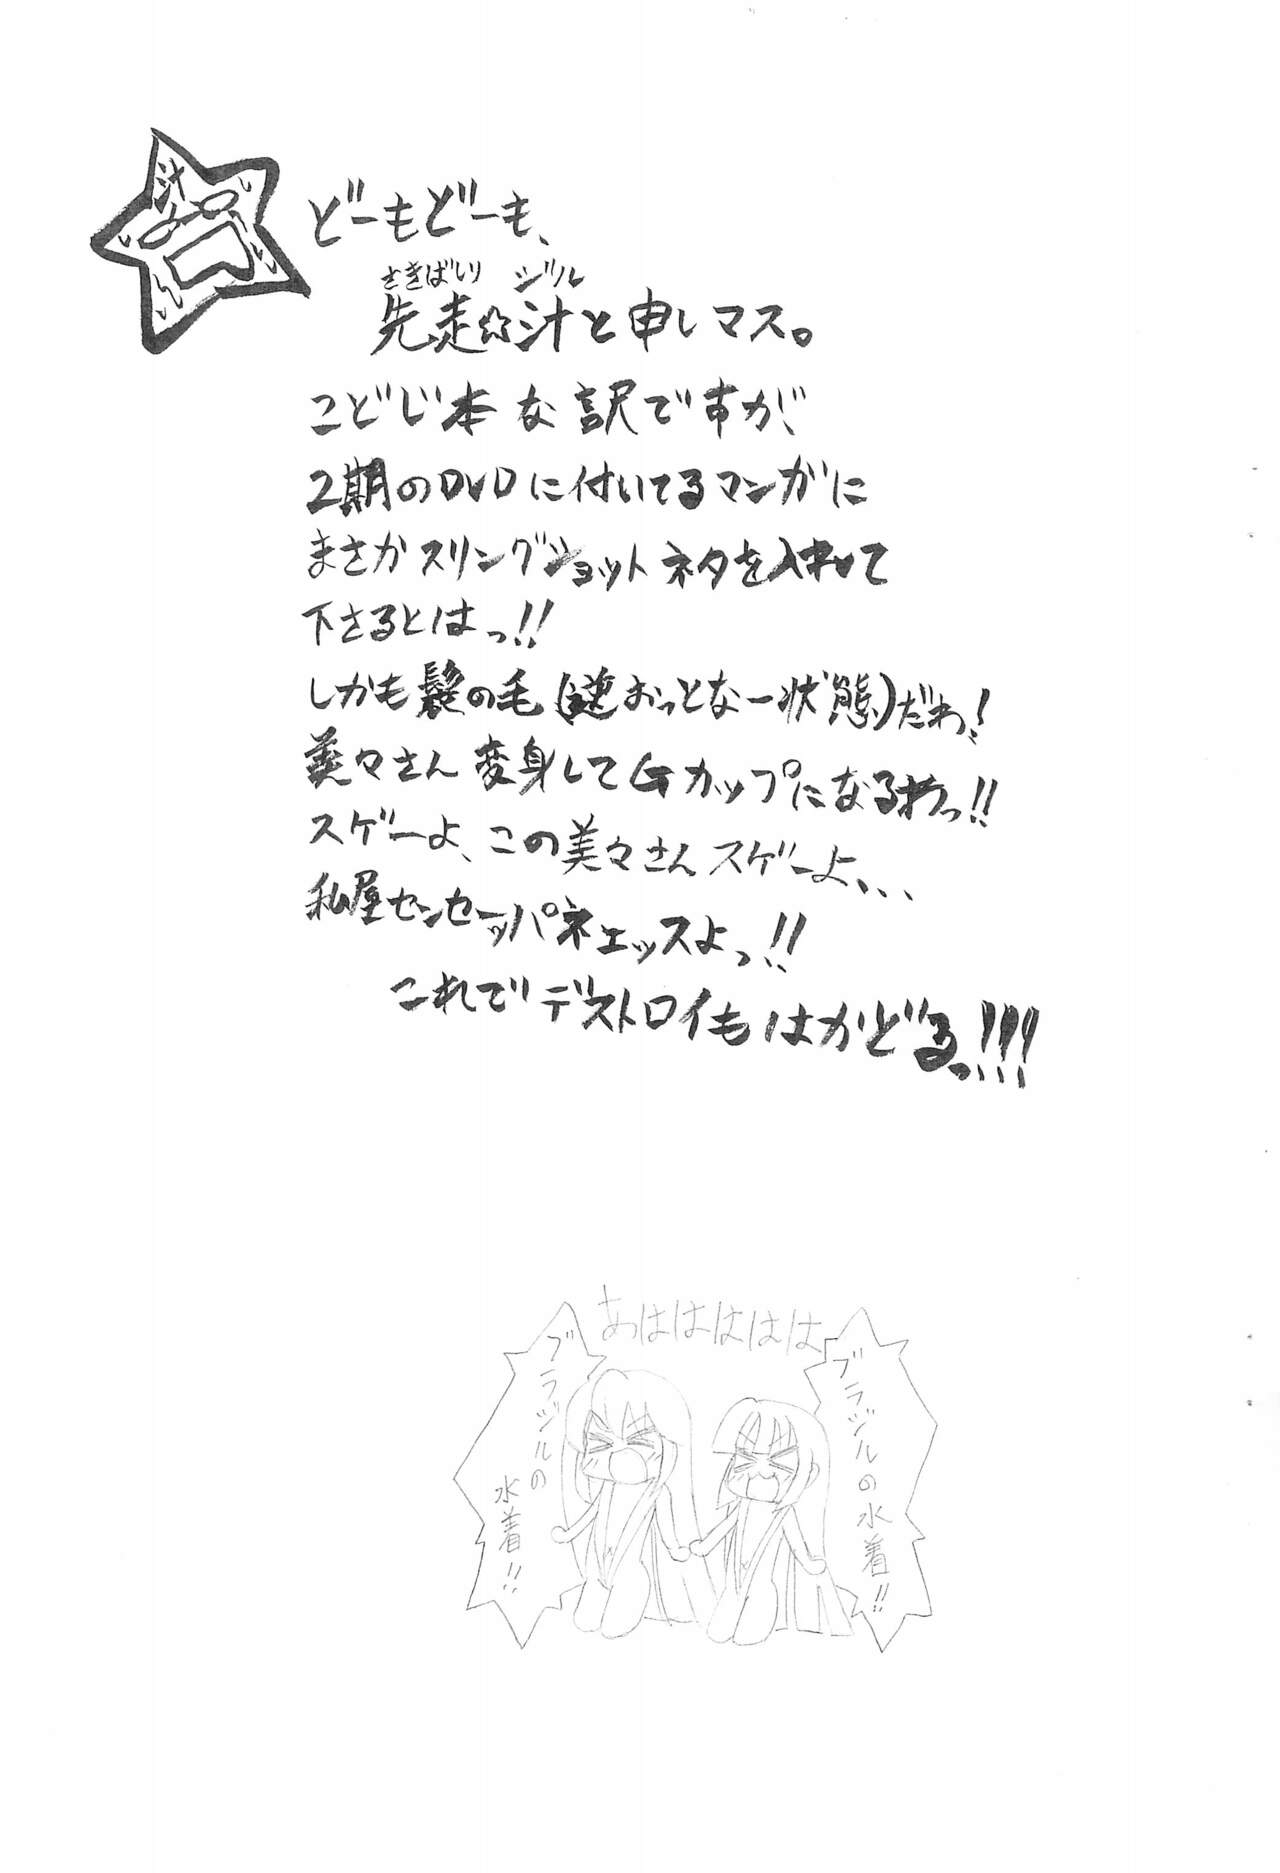 どーもどーも、
さきばしり ジル
先走☆汁と申しマス。
こどじ本な訳ですが、
2期のDVDに付いてるマンガに
まさかスリングショットネタを入れて
下さるとはっ!!
しかも髪の毛(逆おっとなー状態)だわっ!
美々さん変身してGカップになるわっ!!
スゲーよ、この美々さんスゲーよ、、、
私屋センセーッパネェッスよっ!!
これでデストロイもはかどるっ!!!
あはははははは
ブラジルの水着!!
ブラジルの
水着!!